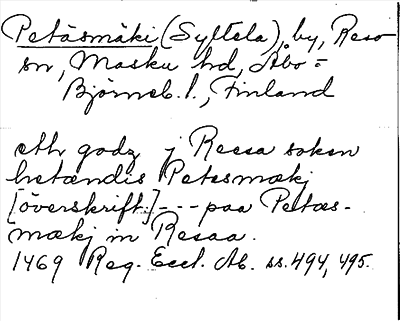 Petäsmäki (Syltela), by, Reso
sn, Masku hd, Åbo=
Björneb. l., Finland
eth godz j Reesa soken
hetændis Petesmækj
[överskrift.] --- paa Petæs-
mækj in Resaa.
1469 Reg. Eccl. Ab. ss. 494, 495.